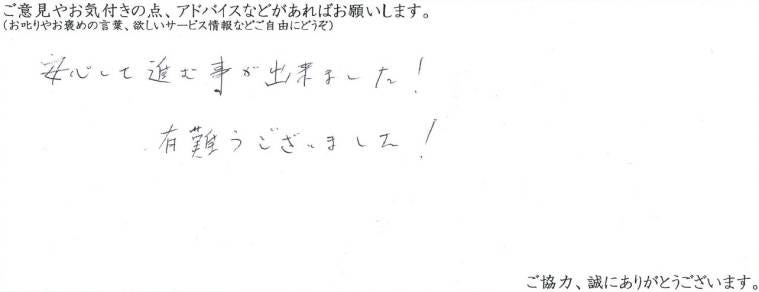 ご意見やお気付きの点、アドバイスなどがあればお願いします。
(お叱りやお褒めの言葉、欲しいサービス情報などご自由にどうぞ)
安心して進む事が出来ました!
有難うございました!
ご協力、誠にありがとうございます。